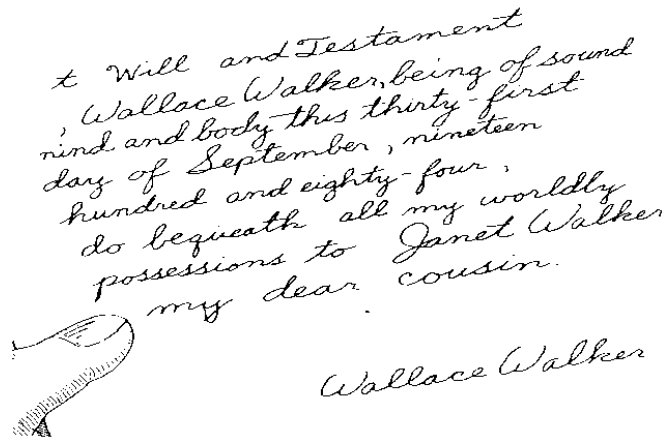 t Will and Testament
, Wallace Walker, being of sound
nind and body this thirty-first
day of September, nineteen
hundred and eighty-four,
do bequeath all my worldly
possessions to Janet Walker
my dear cousin.
Wallace Walker